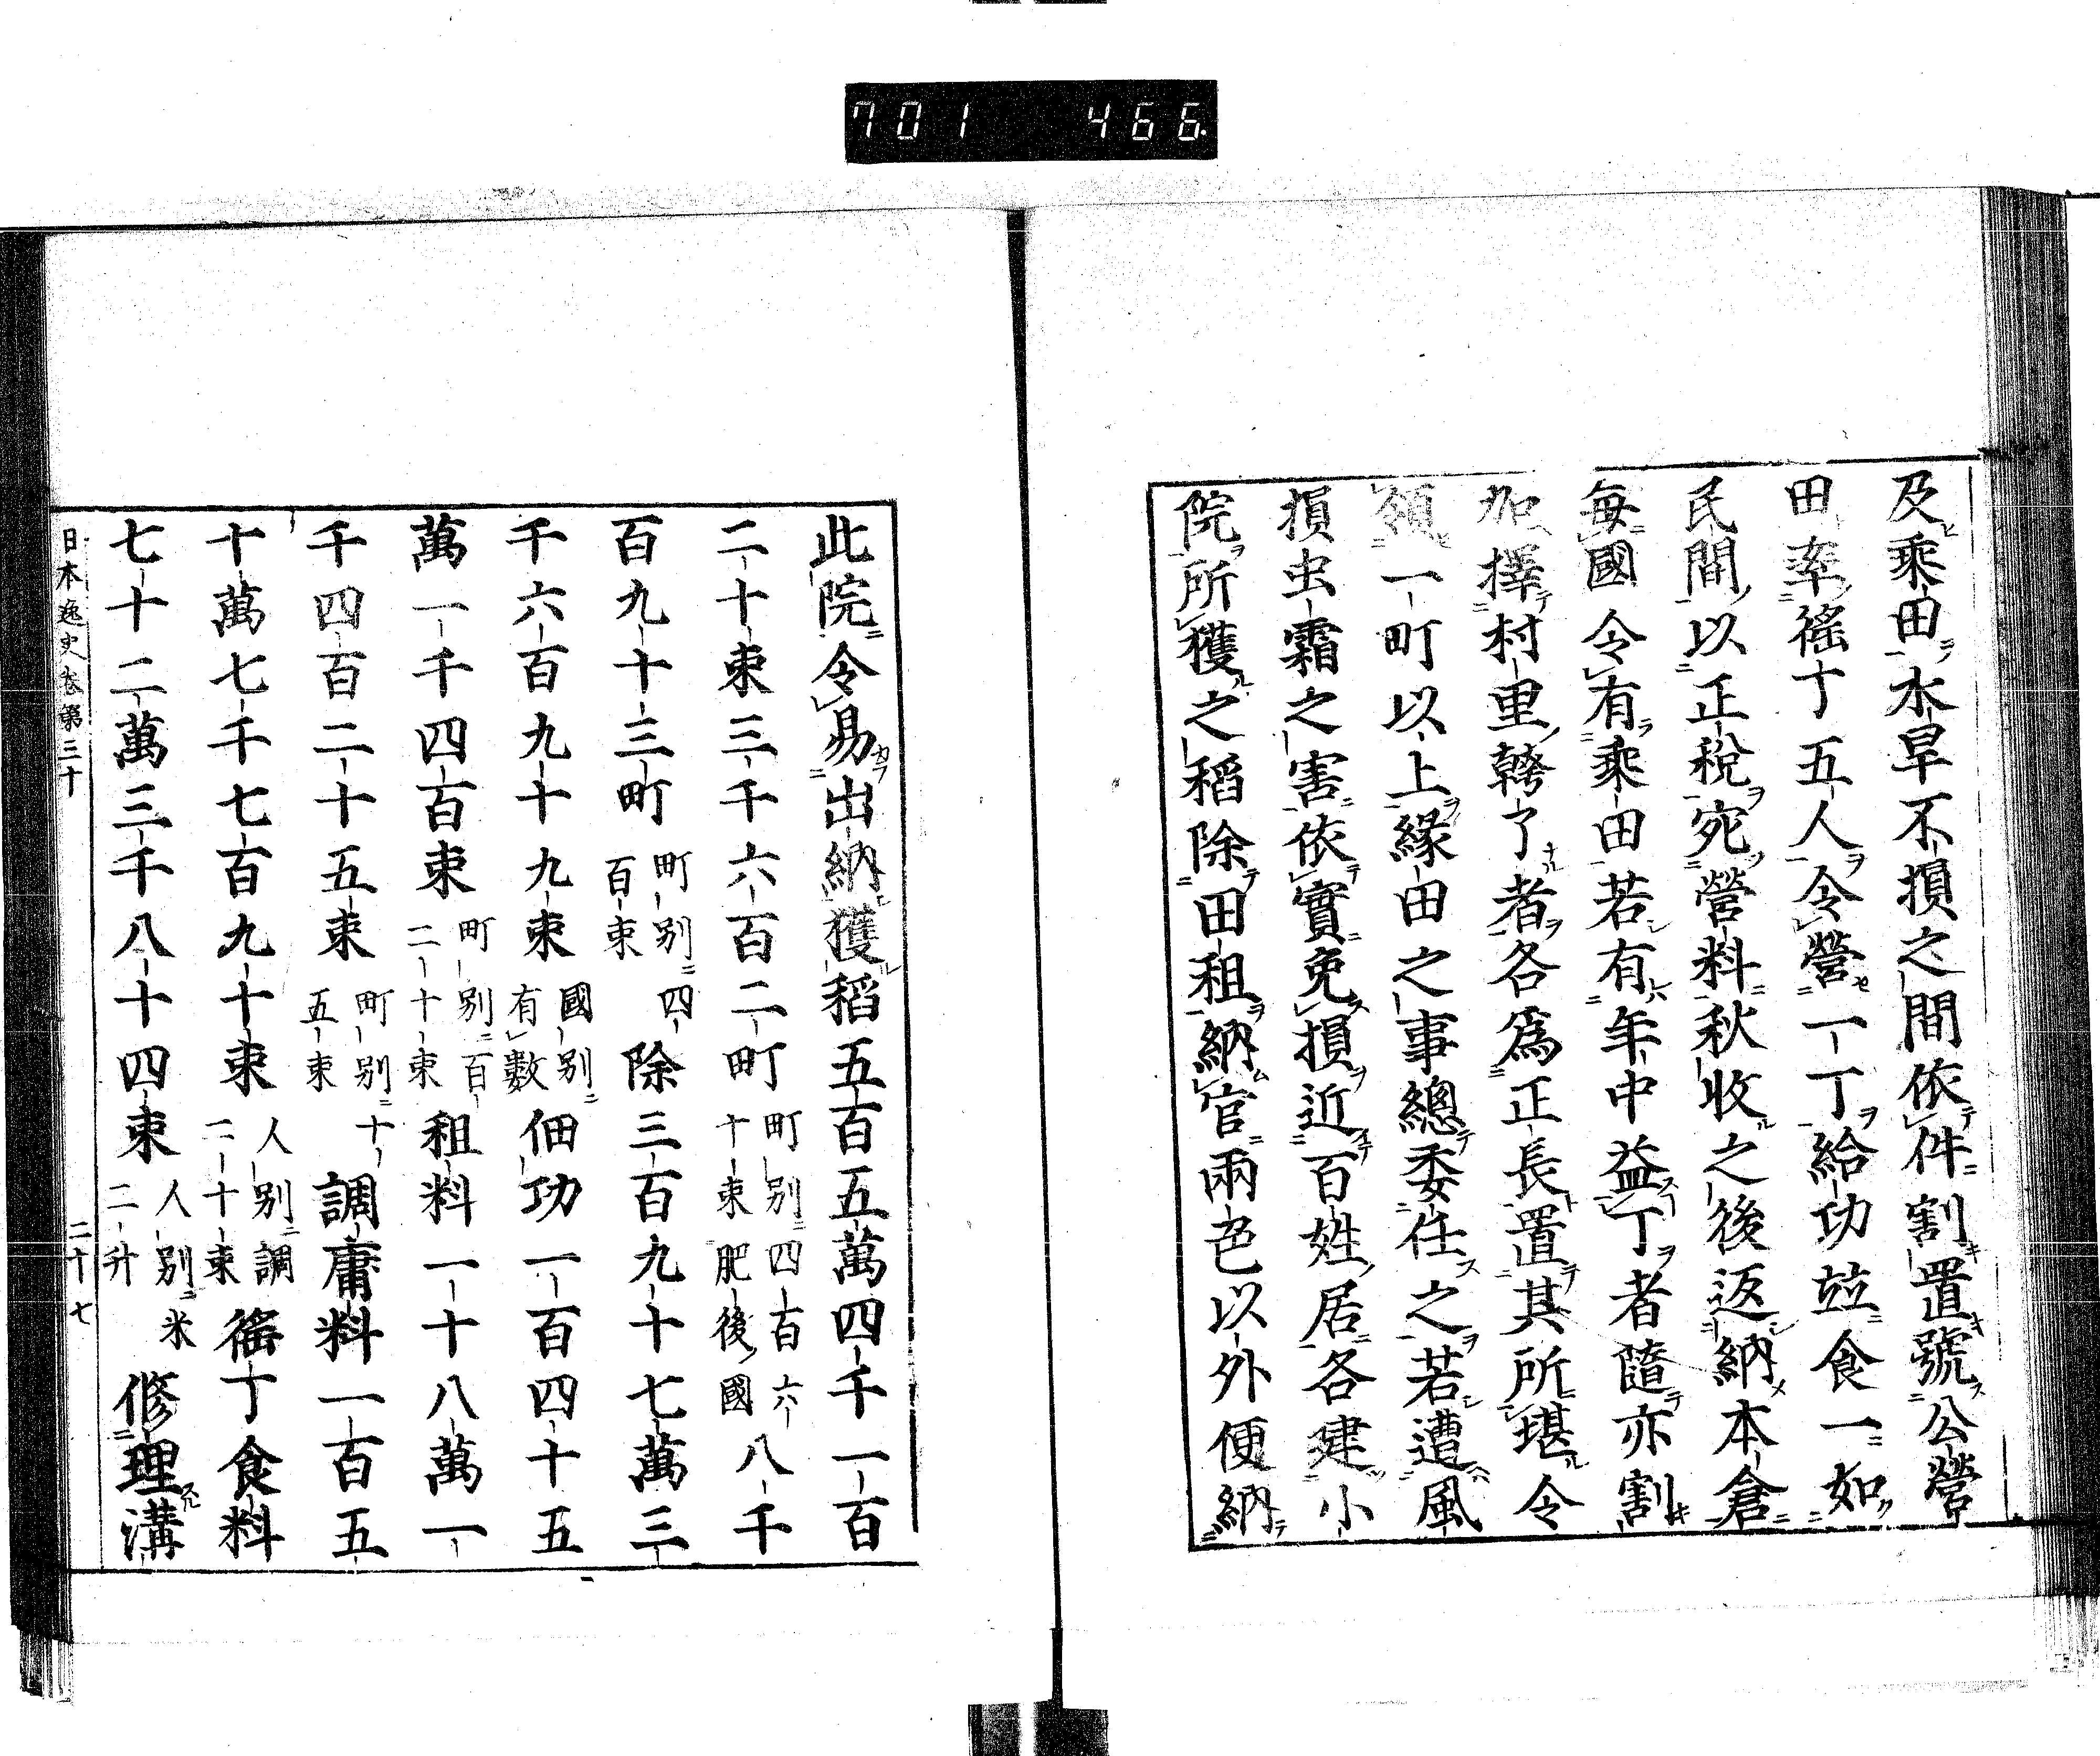 701 466
及乘田水旱不損之間依件割置號公營
田率徭丁五人令營一丁給功竝食一如
民間以正稅宛營料秋收之後返納本倉
每國令有乘田若有年中益丁者隨亦割
加擇村里幹了者各爲正長置其所堪令
領一町以上緣田之事總委任之若遭風
損虫霜之害依實免損近百姓居各建小
院所獲之稻除田租納官兩色以外便納
此院令易出納獲稻五百五萬四千一百
二十束三千六百二町町別四百六十束肥後國八千
百九十三町町別四百束除三百九十七萬三
千六百九十九束國別有數佃功一百四十五
萬一千四百束町別百二十束租料一十八萬一
千四百二十五束町別十五束調庸料一百五
十萬七千七百九十束人別調二十束徭丁食料
七十二萬三千八十四束人別米二升修理溝
日本逸史卷第三十 二十七